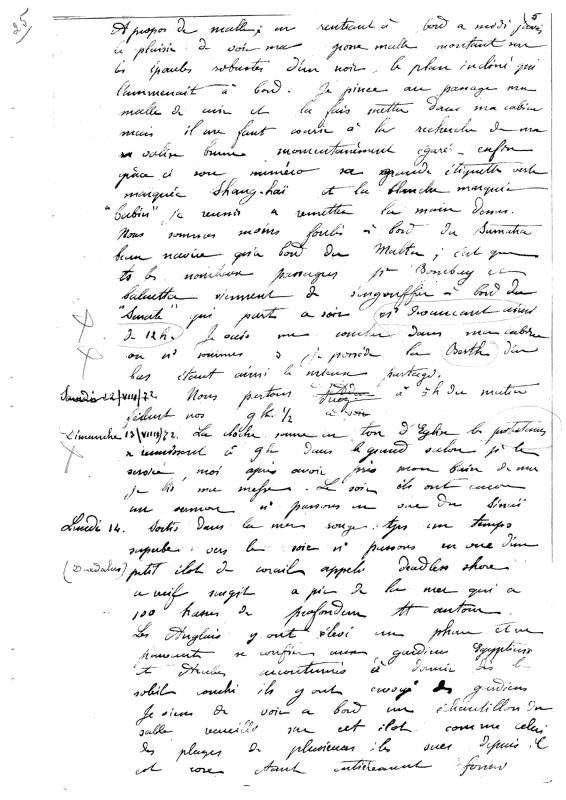 25)
5
A propos de malle; en rentrant à bord a midi j'avais
le plaisir de voir ma grosse malle montant sur
les épaules robustes d'un noir, le plan incliné qui
l'emmenait à bord. Je pince au passage ma
malle de cuir et la fais mettre dans ma cabine
mais il me faut courir à la recherche de ma
valise brune momentanément egaré - enfin
grâce à son numéro sa grande étiquette verte
marquée Shang-haï et la blanche marquée
"Cabin" je reussis a remettre la main dessus.
Nous sommes moins foulés à bord du Sumatra
beau navire qu'a bord du Malta; c'est que
ts les nombreux passagers pr Bombay et
Calcutta viennent de s'engouffrer à bord du
qui part ce soir ns devancant ainsi
de 12h. Je vais me coucher dans ma cabine
ou ns sommes 3, je possède la Berth d'en
bas étant ainsi le mieux partagé.
Samedi 12/VIII/72 Nous partons à 5h du matin
9h. 1/2 ce soir
Dimanche 13/VIII/72. La cloche sonne un ton d'Eglise les protestants
se reunissent à 9h dans le grand salon pr le
service, moi après avoir pris mon bain de mer
je lis ma messe. Le soir ils ont encore
un sermon ns passons en vue du Sinaï
Lundi 14. Sortis dans la mer rouge. tjrs un temps
superbe. vers le soir ns passons en vue d'un
(Daedalus) petit ilot de corail appelé deadless shore
récif surgit a pic de la mer qui a
100 brasses de profondeur tt autour.
Les Anglais y ont élevé un phare et ne
pouvant se confier aux gardiens Egyptiens
et Arabes accoutumés à dormir dès le
soleil couché ils y ont envoyé des gardiens
Je viens de voir a bord un échantillon du
sable recueilli sur cet ilot comme celui
des plages de plusieurs iles vues depuis il
est rose étant entièrement formé